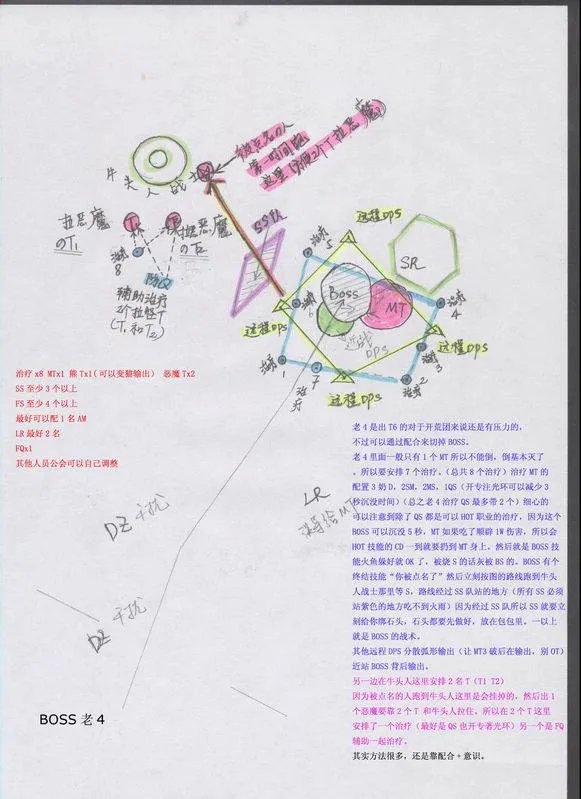 被点名的人
第一时间跑
这里 另便2个T 拉恶魔
牛头人战士
拉恶魔
のT1
拉恶魔
のT2
治疗
8
防Q
辅助治疗
2个拉怪T
(T1和T2)
SS队
远程DPS
治疗
5
SR
Boss
MT
治疗
4
治疗
6
近战
DPS
远程DPS
远程DPS
治疗
3
治疗
1
治疗
7
治疗
2
远程DPS
治疗x8 MTx1 熊Tx1(可以变猫输出) 恶魔Tx2
SS至少3个以上
FS至少4个以上
最好可以配1名AM
LR最好2名
FQx1
其他人员公会可以自己调整
老4是出T6的对于开荒团来说还是有压力的,
不过可以通过配合来切掉BOSS。
老4里面一般只有1个MT所以不能倒,倒基本灭了
。所以要安排7个治疗。(总共8个治疗)治疗MT的
配置3奶D,2SM,2MS,1QS(开专注光环可以减少3
秒沉没时间)(总之老4治疗QS最多带2个)细心的
可以注意到除了QS都是可以HOT职业的治疗,因为这个
BOSS可以沉没5秒,MT如果吃了顺辟1W伤害,所以会
HOT技能的CD一到就要扔到MT身上。然后就是BOSS技
能火鱼躲好就OK了,被烧S的话灰被BS的。BOSS有个
终结技能“你被点名了”然后立刻按图的路线跑到牛头
人战士那里等S,路线经过SS队站的地方(所有SS必须
站紫色的地方吃不到火雨)因为经过SS队所以SS就要立
刻给你绑石头,石头都要先做好,放在包包里。一以上
就是BOSS的战术。
其他远程DPS分散弧形输出(让MT3破后在输出,别OT)
近站BOSS背后输出。
另一边在牛头人这里安排2名T(T1 T2)
因为被点名的人跑到牛头人这里是会挂掉的,然后出1
个恶魔要靠2个T 和牛头人拉住。所以在2个T这里
安排了一个治疗(最好是QS也开专著光环)另一个是FQ
辅助一起治疗。
其实方法很多,还是靠配合+意识。
LR
误导给MT
DZ 干扰
DZ 干扰
BOSS 老4